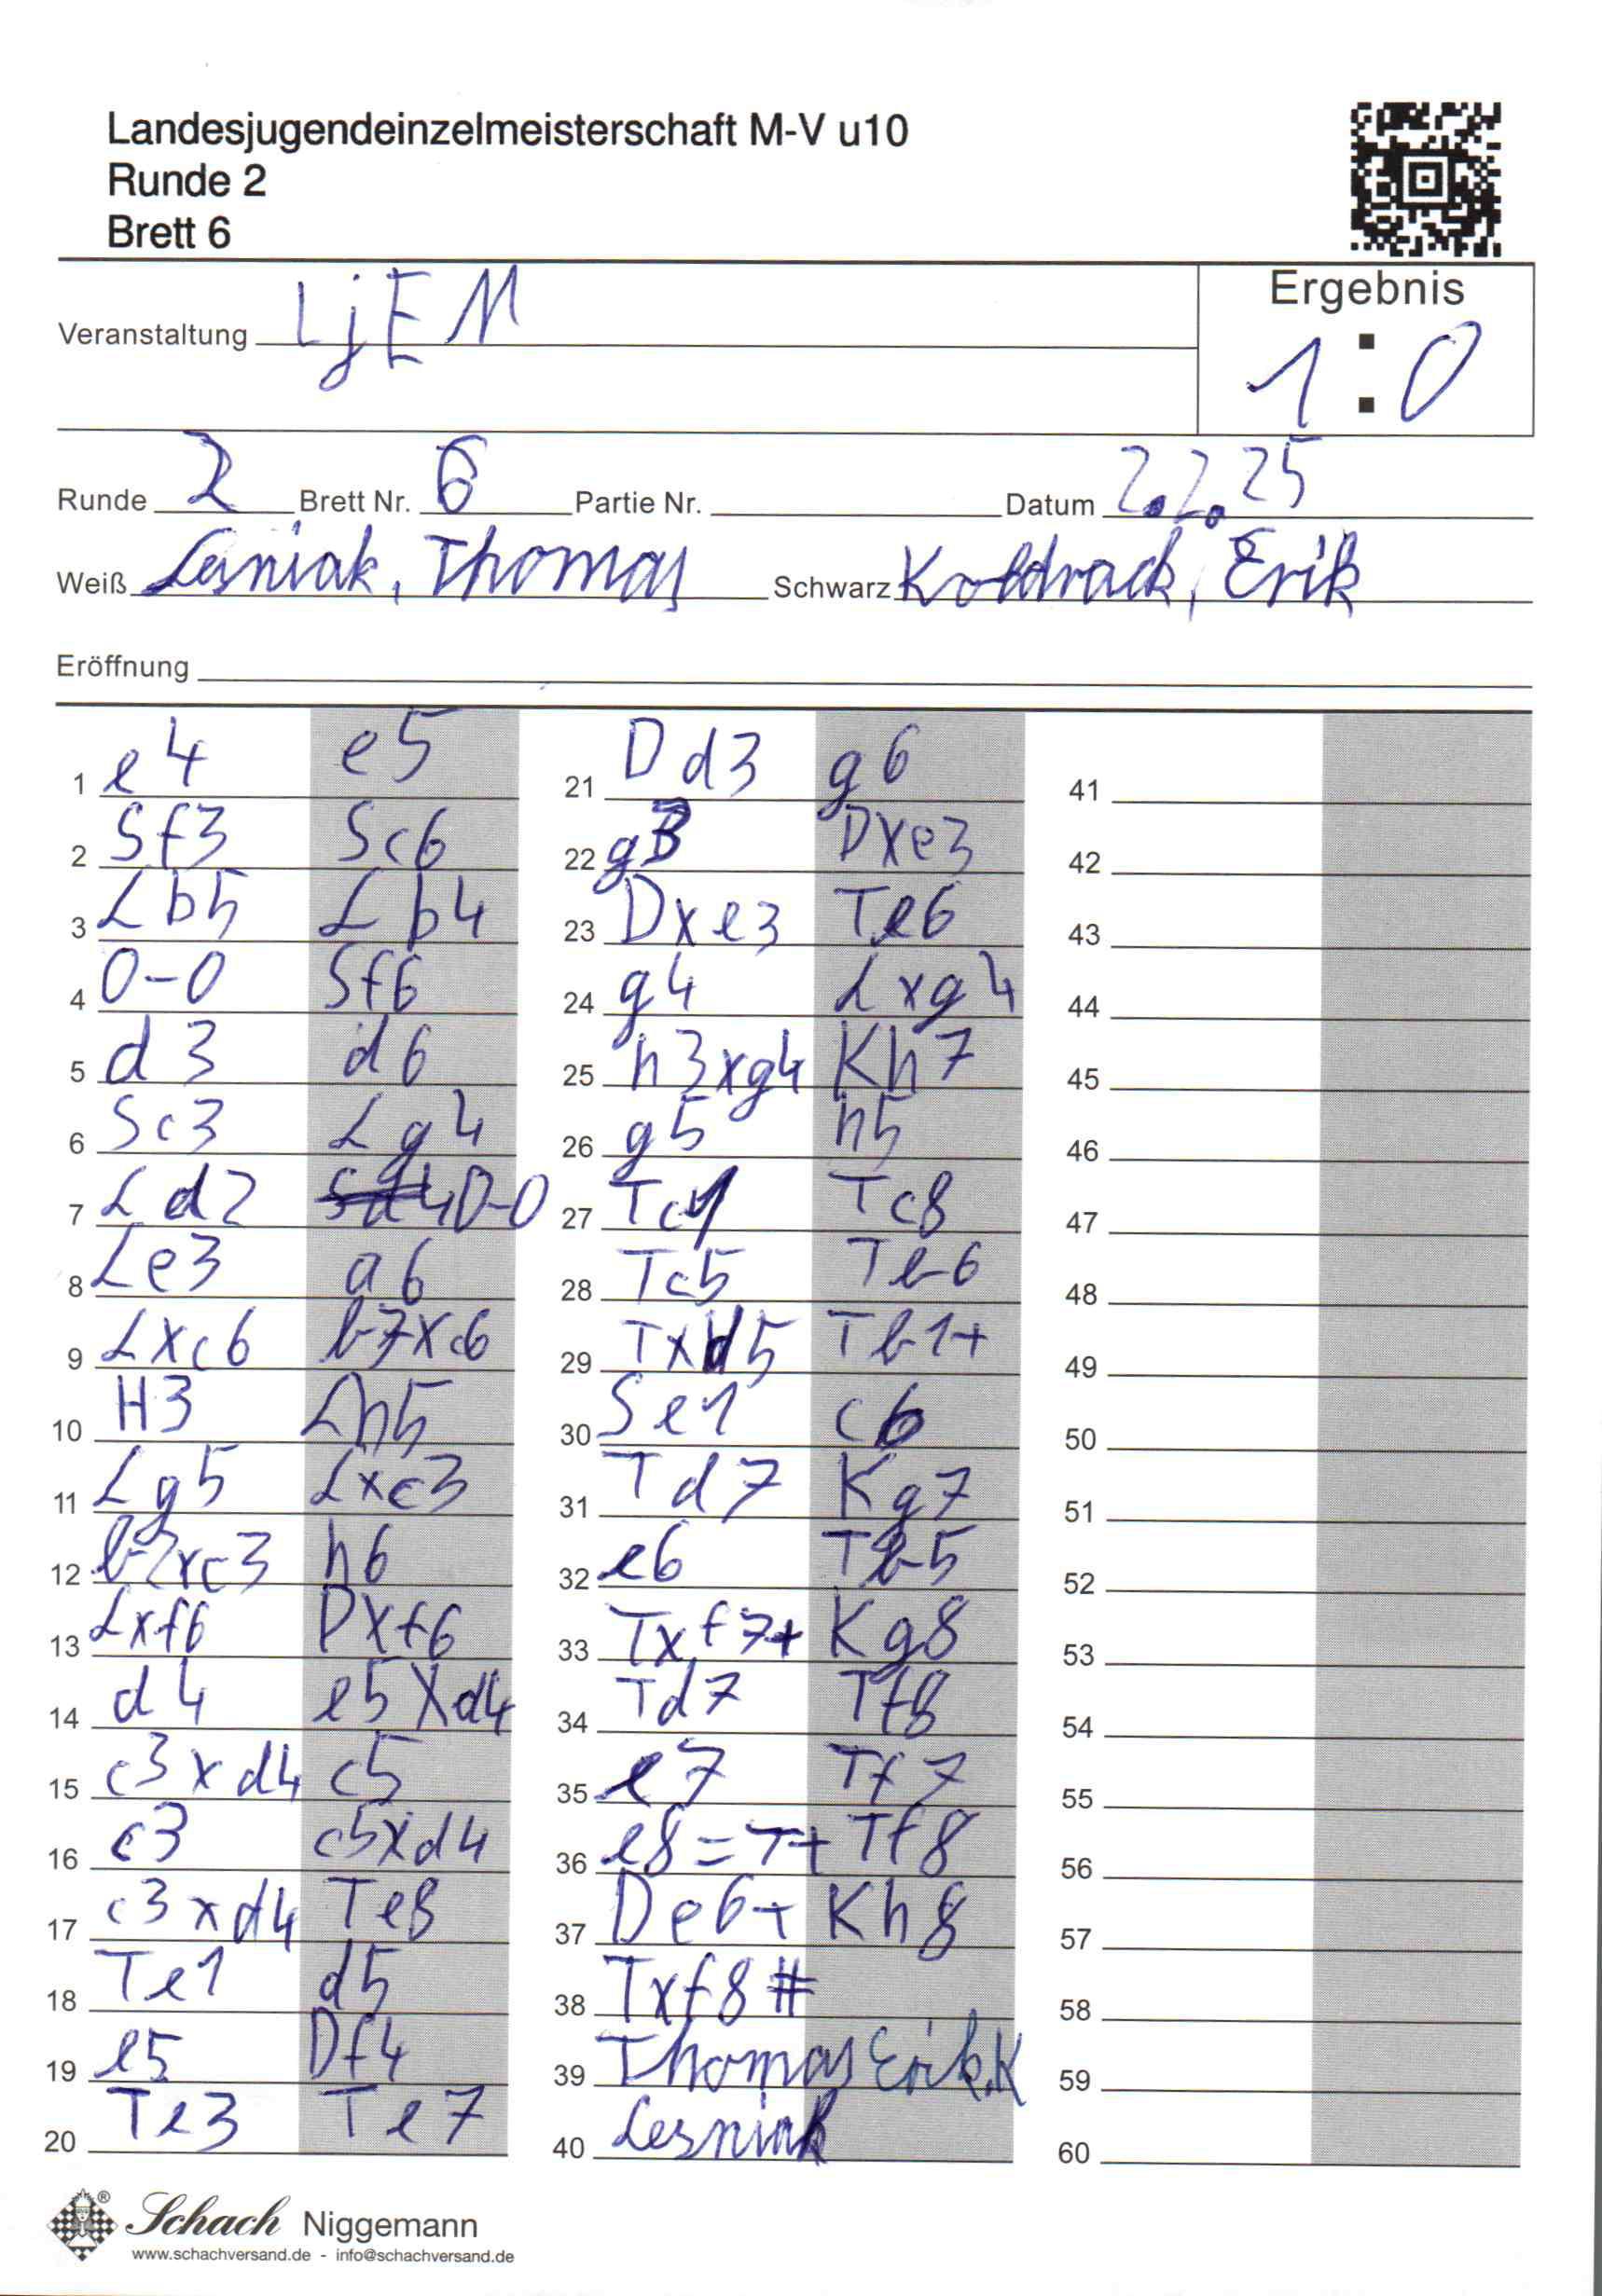 Landesjugendeinzelmeisterschaft M-V u10
Runde 2
Brett 6
Veranstaltung LjEM
Ergebnis
1:0
Runde 2 Brett Nr. 6 Partie Nr. Datum 2.2.25
Weiß Lesniak, Thomas Schwarz Koldrack, Erik
Eröffnung
1 e4 e5
2 Sf3 Sc6
3 Lb5 Lb4
4 0-0 Sf6
5 d3 d6
6 Sc3 Lg4
7 Ld2 Sd4 0-0
8 Le3 a6
9 Lxc6 b7xc6
10 H3 Lh5
11 Lg5 Lxc3
12 b2xc3 h6
13 Lxf6 Dxf6
14 d4 e5xd4
15 c3xd4 c5
16 c3 c5xd4
17 c3xd4 Te8
18 Te1 d5
19 e5 Df4
20 Te3 Te7
21 Dd3 g6
22 g3 Dxe3
23 Dxe3 Te6
24 g4 Lxg4
25 h3xg4 Kh7
26 g5 h5
27 Tc1 Tc8
28 Tc5 Tb6
29 Txd5 Tb1+
30 Se1 c6
31 Td7 Kg7
32 e6 Tb5
33 Txf7+ Kg8
34 Td7 Tf8
35 e7 Tf7
36 e8=T+ Tf8
37 De6+ Kh8
38 Txf8#
39 Thomas Erik.K
40 Lesniak
41
42
43
44
45
46
47
48
49
50
51
52
53
54
55
56
57
58
59
60
Schach Niggemann
www.schachversand.de - info@schachversand.de